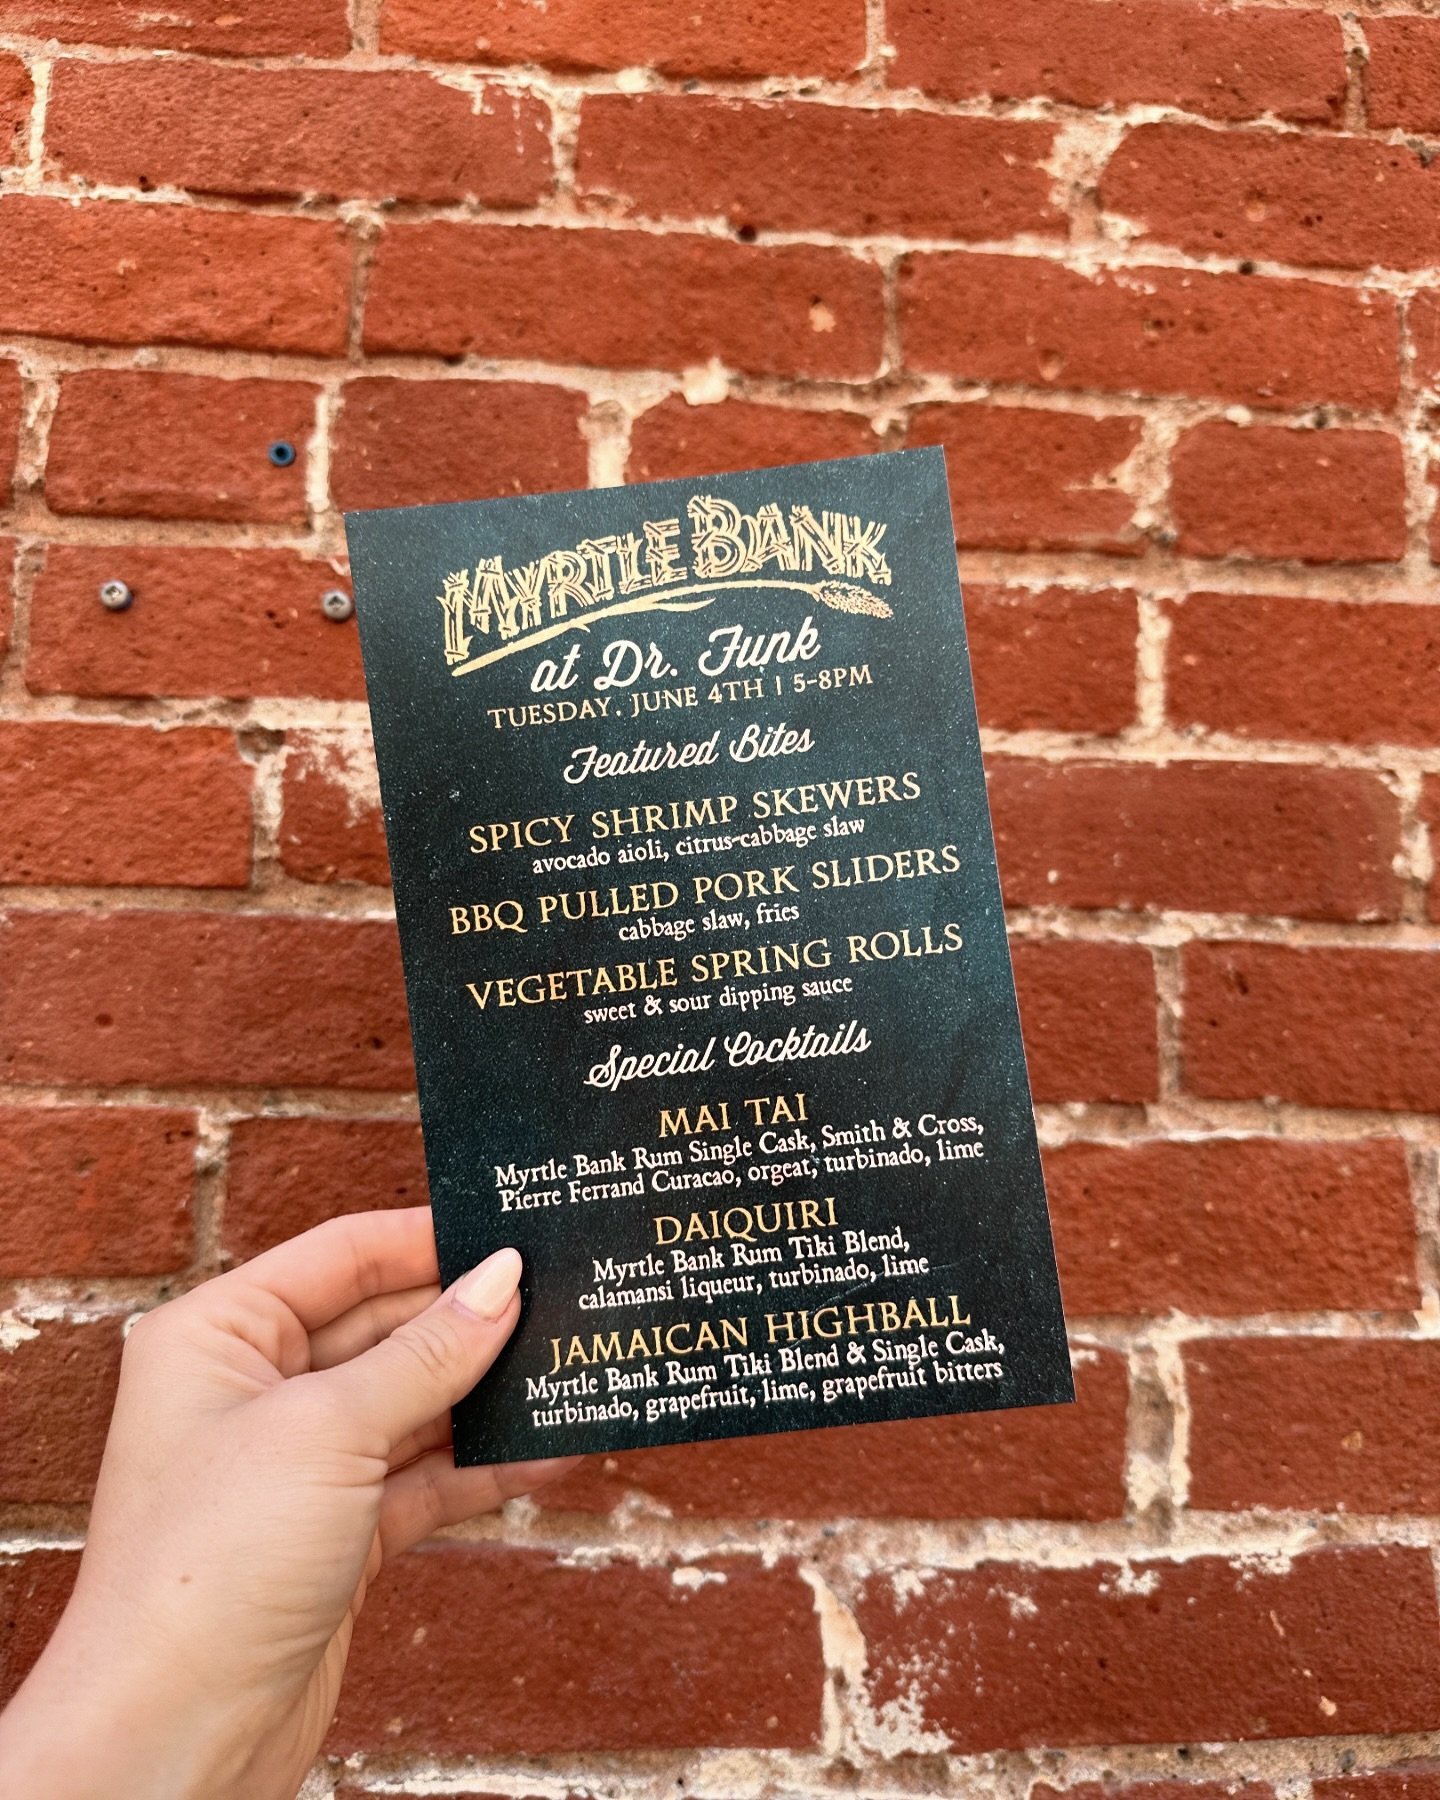 MYRTLE BANK
at Dr. Funk
TUESDAY, JUNE 4TH | 5-8PM
Featured Bites
SPICY SHRIMP SKEWERS
avocado aioli, citrus-cabbage slaw
BBQ PULLED PORK SLIDERS
cabbage slaw, fries
VEGETABLE SPRING ROLLS
sweet & sour dipping sauce
Special Cocktails
MAI TAI
Myrtle Bank Rum Single Cask, Smith & Cross,
Pierre Ferrand Curacao, orgeat, turbinado, lime
DAIQUIRI
Myrtle Bank Rum Tiki Blend,
calamansi liqueur, turbinado, lime
JAMAICAN HIGHBALL
Myrtle Bank Rum Tiki Blend & Single Cask,
turbinado, grapefruit, lime, grapefruit bitters